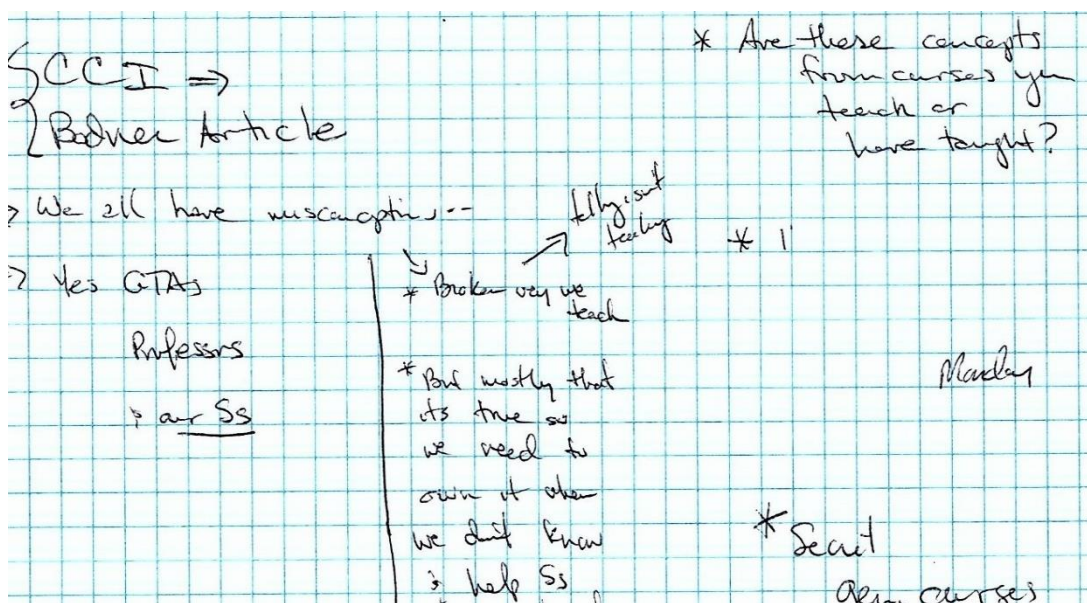 CCI ⇒
Bodner Article
We all have misconceptions...
Yes GTAs
Professors
& our Ss
telling isn't
teaching
* Broken way we
teach
* But mostly that
its true so
we need to
own it when
we don't know
& help Ss
* Are these concepts
from courses you
teach or
have taught?
*
Monday
*
courses